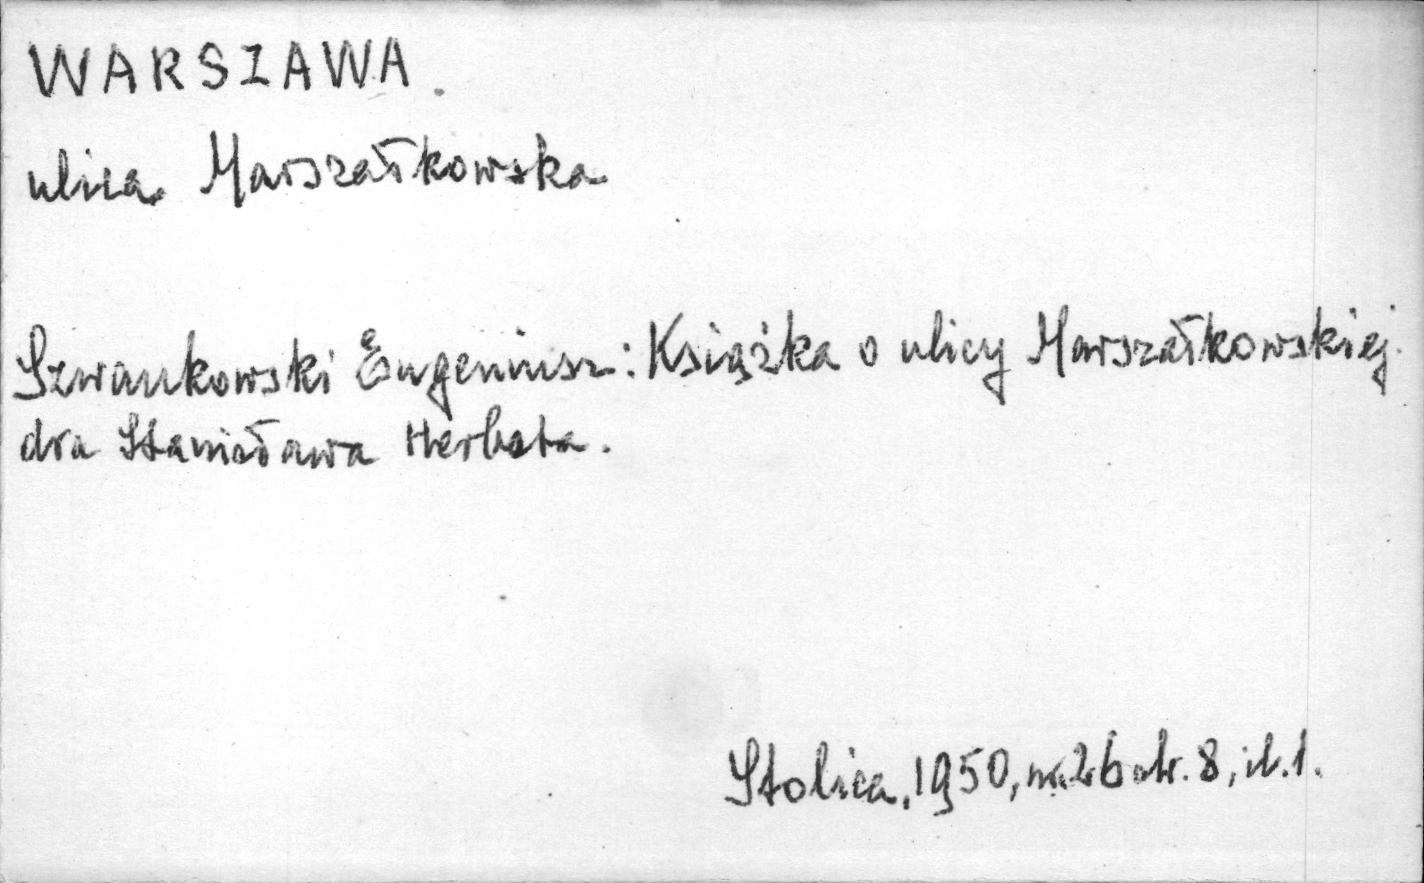 WARSZAWA.
ulica Marszałkowska
Szwankowski Eugeniusz: Książka o ulicy Marszałkowskiej
dra Stanisława Herbsta.
Stolica, 1950, nr. 26 str. 8, il. 1.